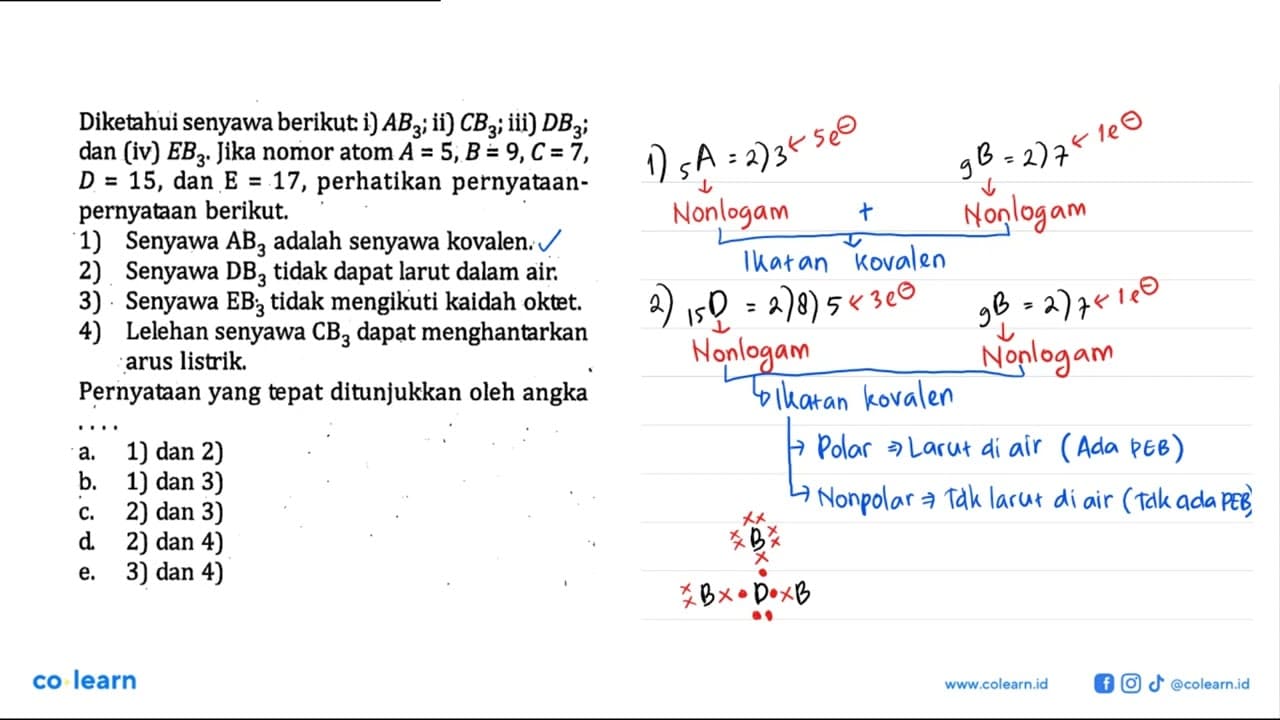 Diketahui senyawa berikut: i) AB₃; ii) CB₃; iii) DB₃;
dan (iv) EB₃. Jika nomor atom A = 5, B = 9, C = 7,
D = 15, dan E = 17, perhatikan pernyataan-
pernyataan berikut.
1) Senyawa AB₃ adalah senyawa kovalen. ✓
2) Senyawa DB₃ tidak dapat larut dalam air.
3) Senyawa EB₃ tidak mengikuti kaidah oktet.
4) Lelehan senyawa CB₃ dapat menghantarkan
arus listrik.
Pernyataan yang tepat ditunjukkan oleh angka
....
a. 1) dan 2)
b. 1) dan 3)
c. 2) dan 3)
d. 2) dan 4)
e. 3) dan 4)
1) ₅A = 2)3 ← 5e⊖ ₉B = 2)7 ← 1e⊖
↓ ↓
Nonlogam + Nonlogam
Ikatan kovalen
2) ₁₅D = 2)8)5 ← 3e⊖ ₉B = 2)7 ← 1e⊖
↓ ↓
Nonlogam Nonlogam
↳ Ikatan kovalen
→ Polar ⇒ Larut di air (Ada PEB)
→ Nonpolar ⇒ Tdk larut di air (Tdk ada PEB)
xx
xx B xx
x
•
xx B x • D • x B
••
co learn
www.colearn.id @colearn.id